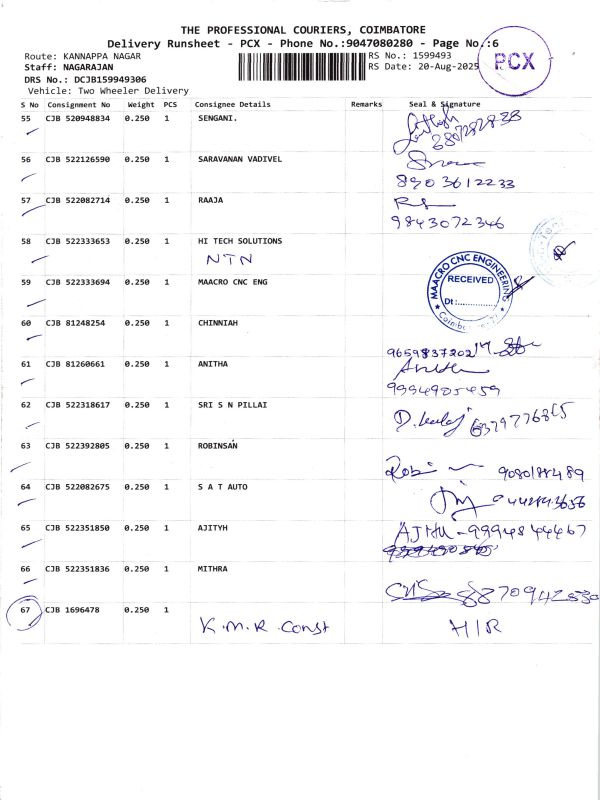 THE PROFESSIONAL COURIERS, COIMBATORE
Delivery Runsheet - PCX - Phone No.:9047080280 - Page No.:6
Route: KANNAPPA NAGAR
RS No.: 1599493
Staff: NAGARAJAN
RS Date: 20-Aug-2025
PCX
DRS No.: DCJB159949306
Vehicle: Two Wheeler Delivery
S No Consignment No Weight PCS Consignee Details Remarks Seal & Signature
55 CJB 520948834 0.250 1 SENGANI.
56 CJB 522126590 0.250 1 SARAVANAN VADIVEL
8903612233
57 CJB 522082714 0.250 1 RAAJA
9843072346
58 CJB 522333653 0.250 1 HI TECH SOLUTIONS
NTN
59 CJB 522333694 0.250 1 MAACRO CNC ENG
MAACRO CNC ENGINEERING
RECEIVED
Dt:
60 CJB 81248254 0.250 1 CHINNIAH
9659837202
61 CJB 81260661 0.250 1 ANITHA
9994905459
62 CJB 522318617 0.250 1 SRI S N PILLAI
63 CJB 522392805 0.250 1 ROBINSAN
Robi
64 CJB 522082675 0.250 1 S A T AUTO
65 CJB 522351850 0.250 1 AJITYH
9994844467
66 CJB 522351836 0.250 1 MITHRA
67 CJB 1696478 0.250 1
K.M.R. Const H/R